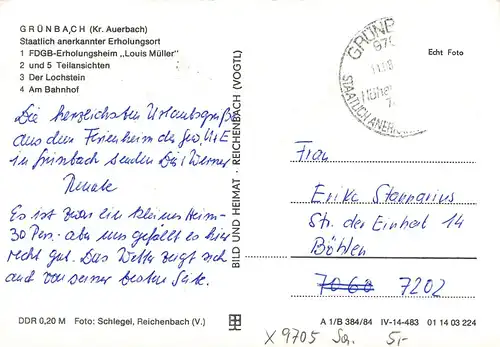 GRÜNBACH (Kr. Auerbach)
Staatlich anerkannter Erholungsort
1 FDGB-Erholungsheim „Louis Müller"
2 und 5 Teilansichten
3 Der Lochstein
4 Am Bahnhof
Die herzlichsten Urlaubsgrüße
aus dem Ferienheim der
in Grünbach senden Dir Werner
Renate
Es ist zwar ein kleines Heim-
30 Pers. - aber uns gefällt es hier
recht gut. Das Wetter zeigt sich
auch von seiner besten Seite.
DDR 0,20 M Foto: Schlegel, Reichenbach (V.)
BILD UND HEIMAT · REICHENBACH (VOGTL)
GRÜNB
Höhe
STAATLICH ANER
Echt Foto
Frau
Erika
Str. der Einheit 14
Böhlen
7060 7202
A 1/B 384/84 IV-14-483 01 14 03 224
X 9705 Sa. 5,-